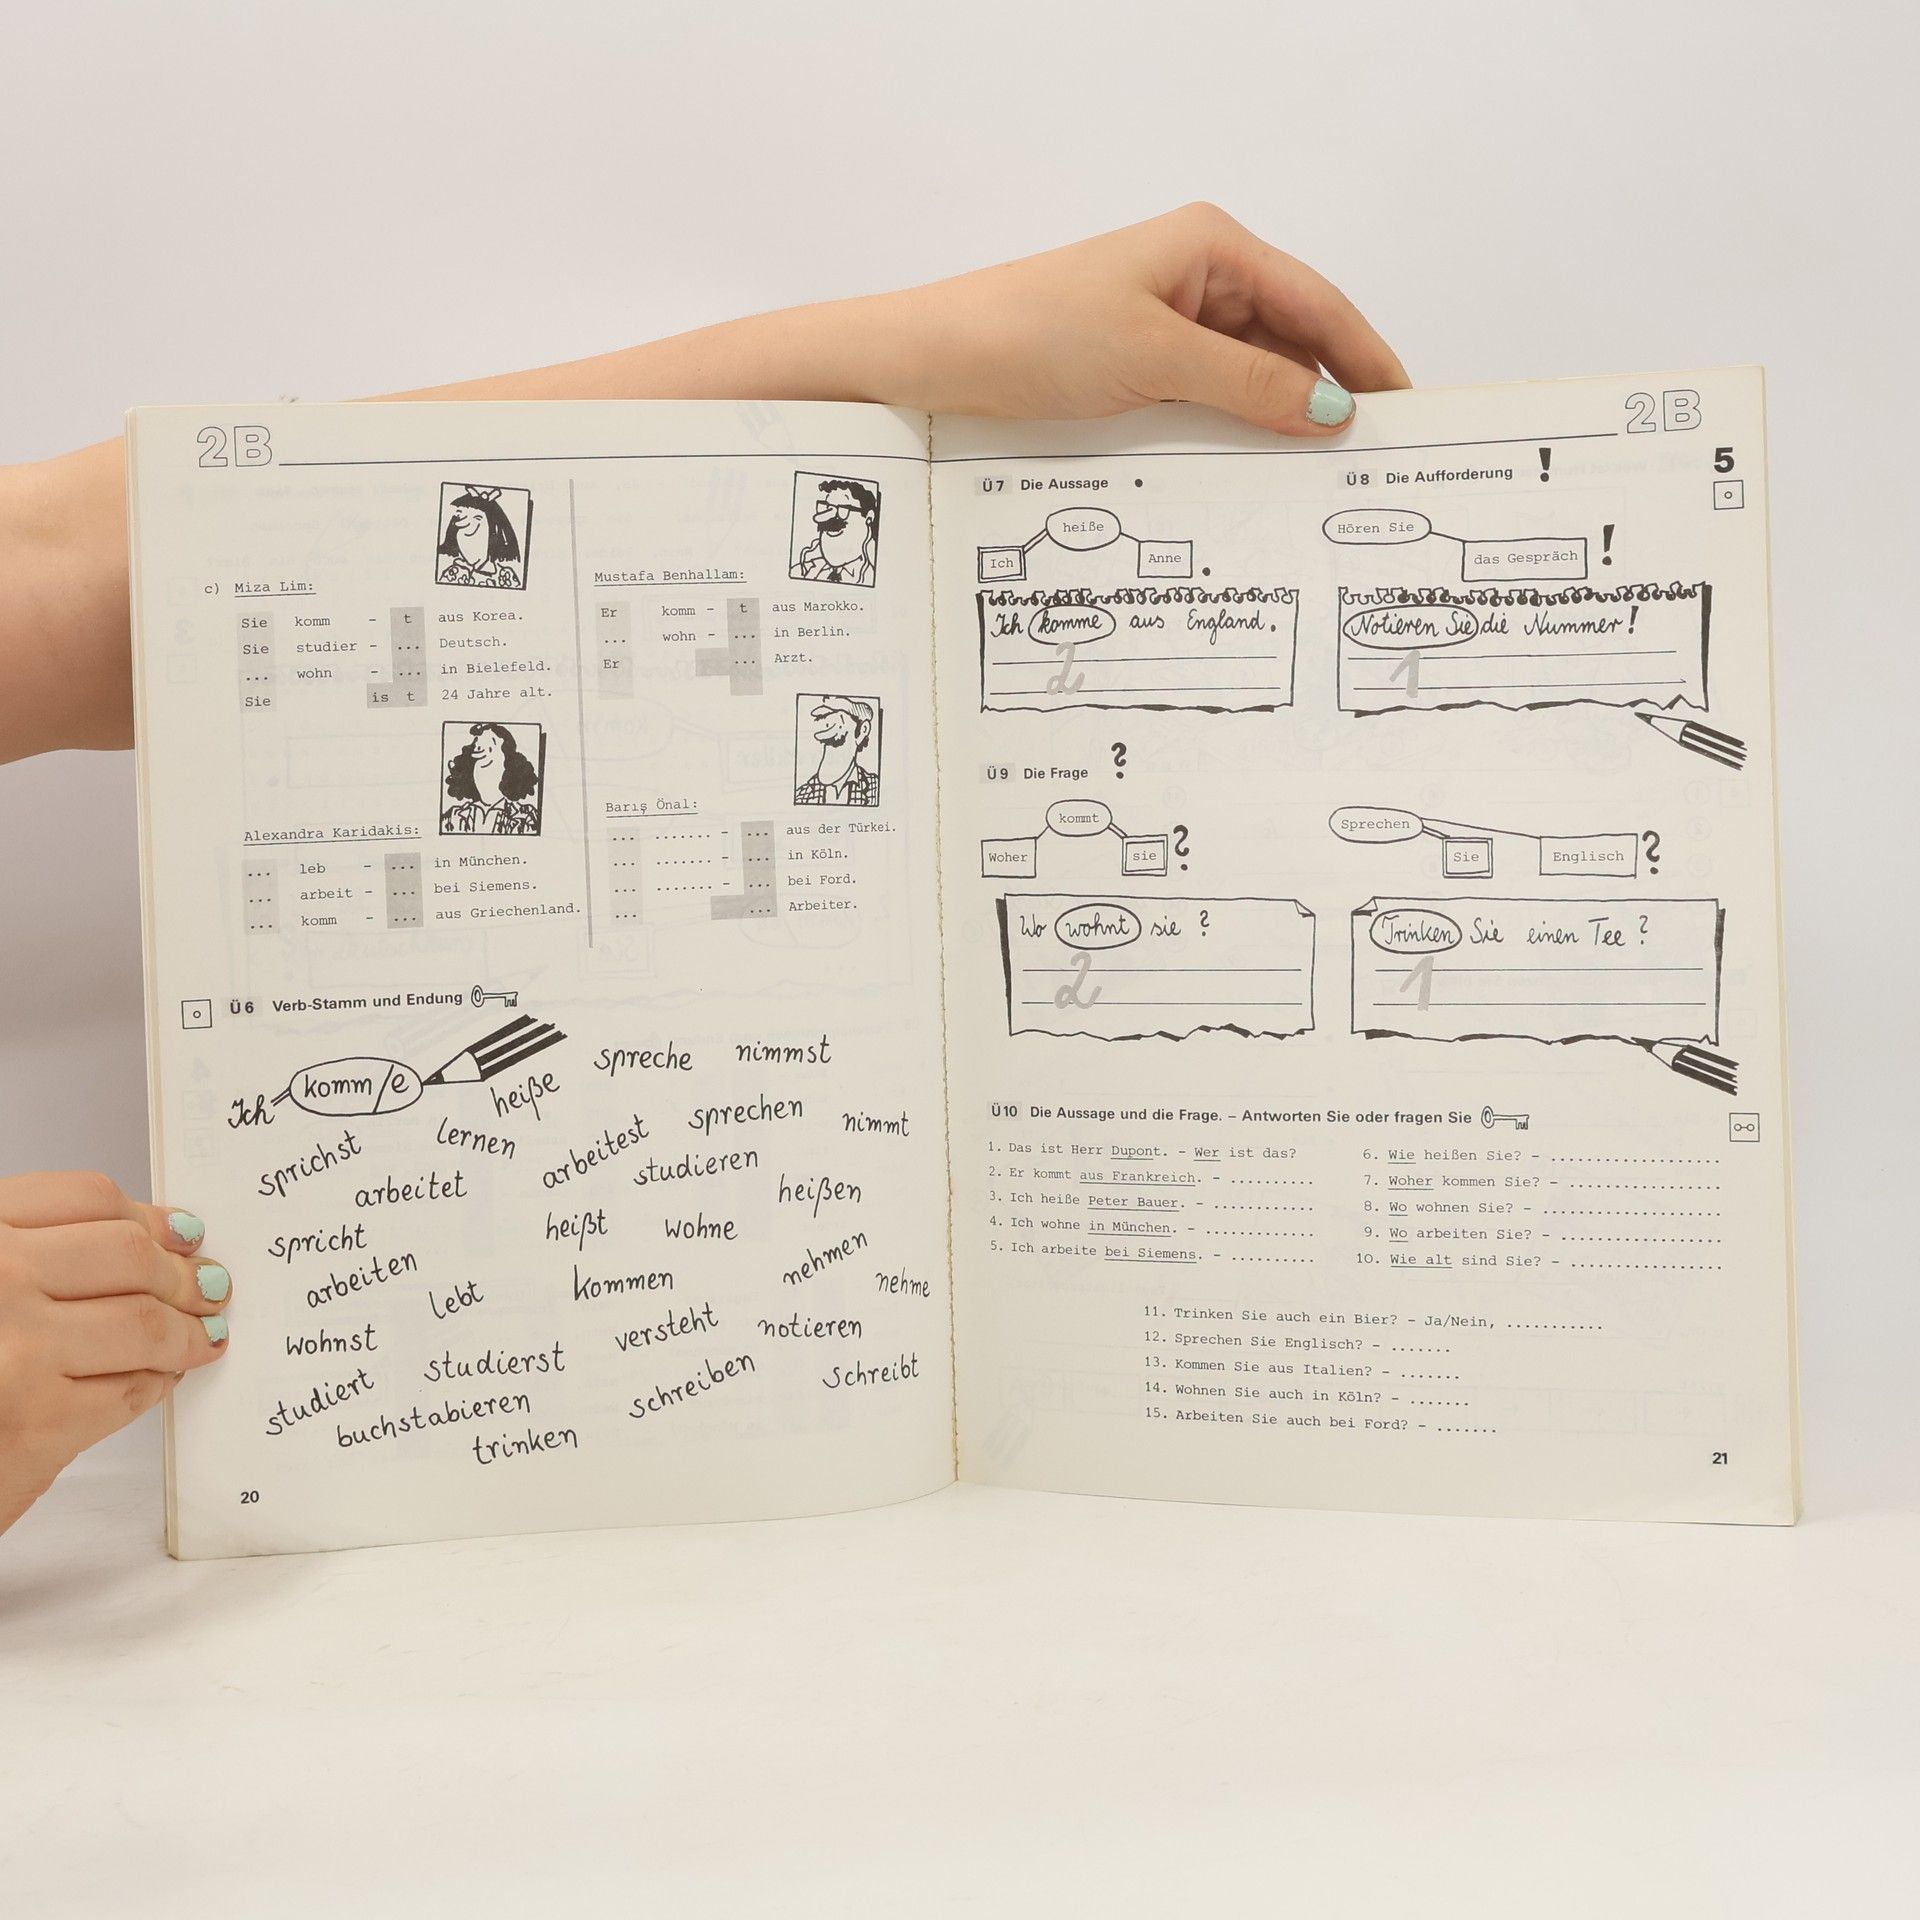 2B
c) Miza Lim:
Sie komm - t aus Korea.
Sie studier - ... Deutsch.
... wohn - ... in Bielefeld.
Sie is t 24 Jahre alt.
Mustafa Benhallam:
Er komm - t aus Marokko.
... wohn - ... in Berlin.
Er ... Arzt.
Alexandra Karidakis:
... leb - ... in München.
... arbeit - ... bei Siemens.
... komm - ... aus Griechenland.
Barış Önal:
... ....... - ... aus der Türkei.
... ....... - ... in Köln.
... ....... - ... bei Ford.
... ... Arbeiter.
Ü6 Verb-Stamm und Endung
Ich komm/e
heiße
spreche nimmst
sprichst
lernen
arbeitest
sprechen
nimmt
arbeitet
studieren
heißen
spricht
heißt
wohne
arbeiten
lebt
kommen
nehmen
nehme
wohnst
studierst
versteht
notieren
studiert
buchstabieren
schreiben
schreibt
trinken
20
2B
5
Ü7 Die Aussage .
Ich heiße Anne .
Ich komme aus England.
2
Ü8 Die Aufforderung !
Hören Sie das Gespräch !
Notieren Sie die Nummer!
1
Ü9 Die Frage ?
Woher kommt sie ?
Wo wohnt sie ?
2
Sprechen Sie Englisch ?
Trinken Sie einen Tee ?
1
Ü10 Die Aussage und die Frage. – Antworten Sie oder fragen Sie
1. Das ist Herr Dupont. - Wer ist das?
2. Er kommt aus Frankreich. - ..........
3. Ich heiße Peter Bauer. - ............
4. Ich wohne in München. - .............
5. Ich arbeite bei Siemens. - ..........
6. Wie heißen Sie? - .....................
7. Woher kommen Sie? - ...................
8. Wo wohnen Sie? - ......................
9. Wo arbeiten Sie? - ....................
10. Wie alt sind Sie? - ...................
11. Trinken Sie auch ein Bier? - Ja/Nein, ...........
12. Sprechen Sie Englisch? - .......
13. Kommen Sie aus Italien? - .......
14. Wohnen Sie auch in Köln? - .......
15. Arbeiten Sie auch bei Ford? - .......
21